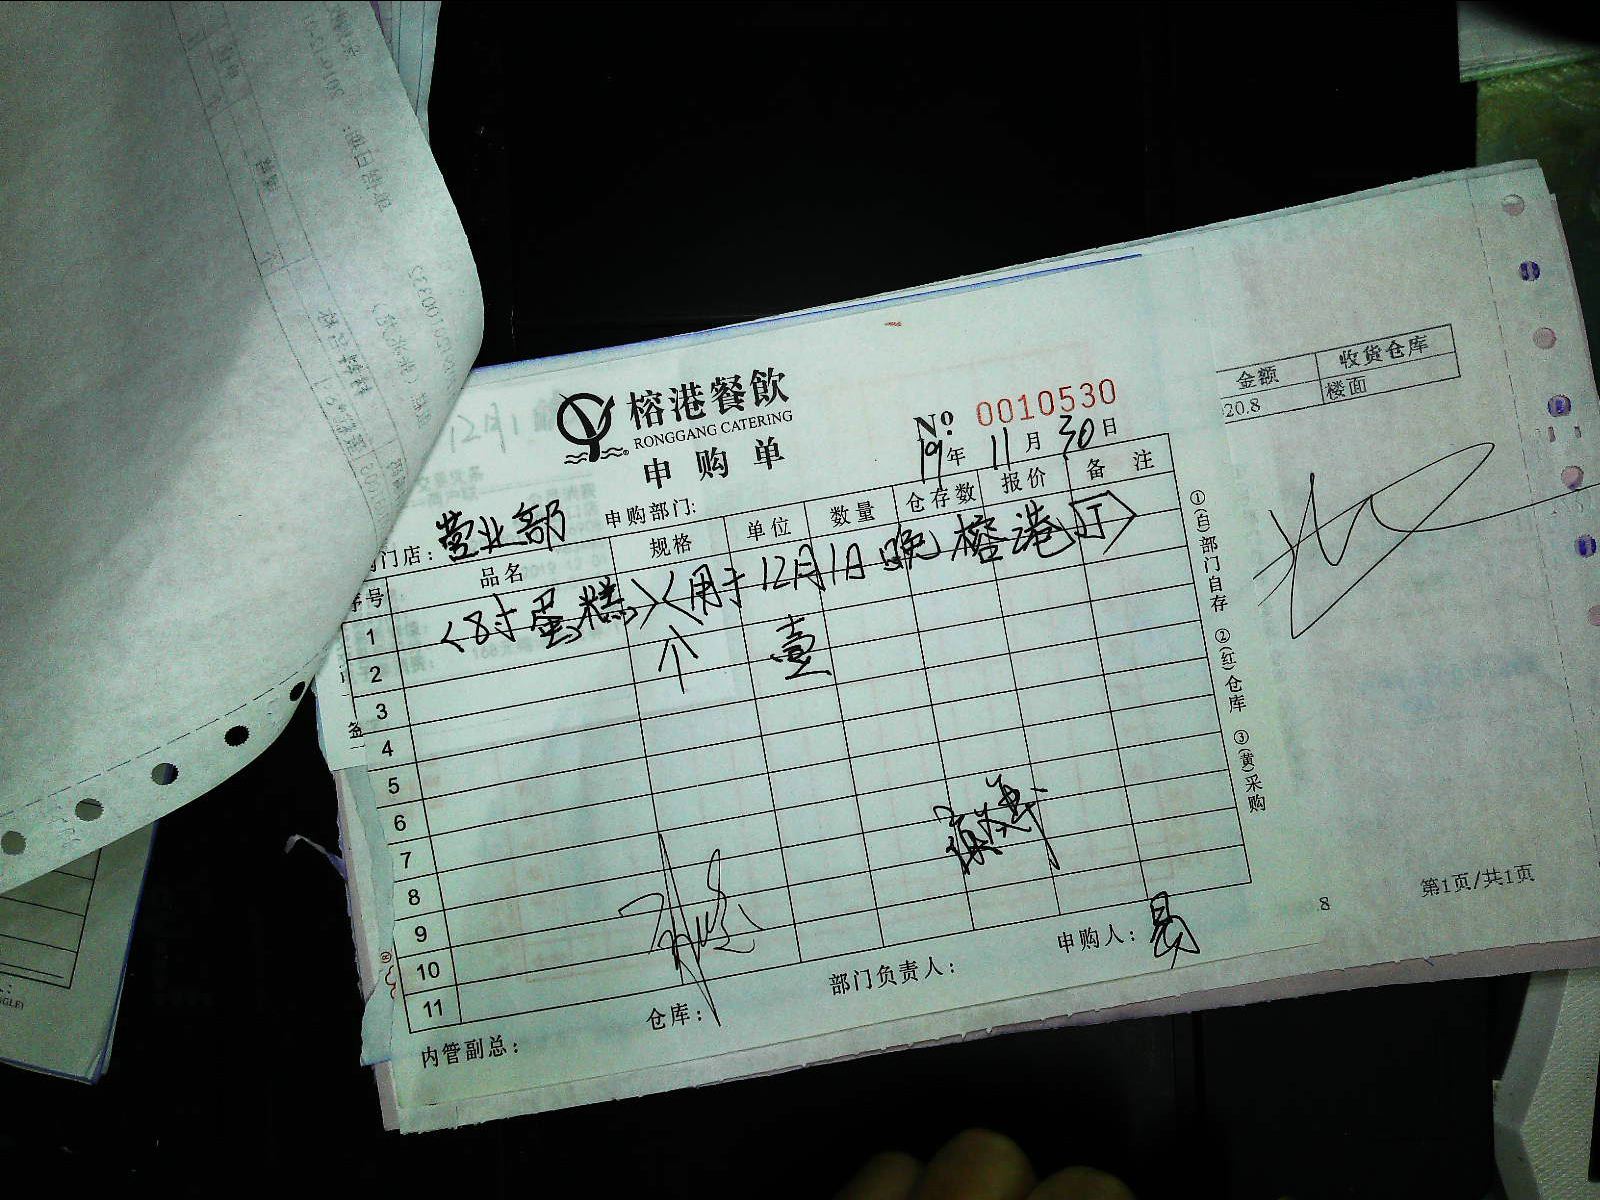 榕港餐飲
RONGGANG CATERING
申购单
Nº 0010530
19年 11月 30日
门店：营业部 申购部门:
序号 品名 规格 单位 数量 仓存数 报价 备注
1 〈8寸蛋糕〉〈用于12月1日晚榕港厅〉
2 个 壹
3
4
5
6
7
8
9
10
11
内管副总： 仓库： 部门负责人： 申购人：易
①(白)部门自存 ②(红)仓库 ③(黄)采购
金额 收货仓库
20.8 楼面
8
第1页/共1页